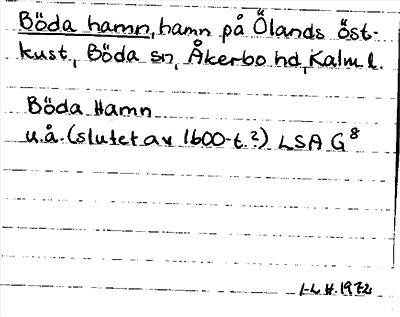 Böda hamn, hamn på Ölands öst-
kust, Böda sn, Åkerbo hd, Kalm. l.
Böda Hamn
u.å. (slutet av 1600-t.?) LSA G⁸
I-L H. 1972